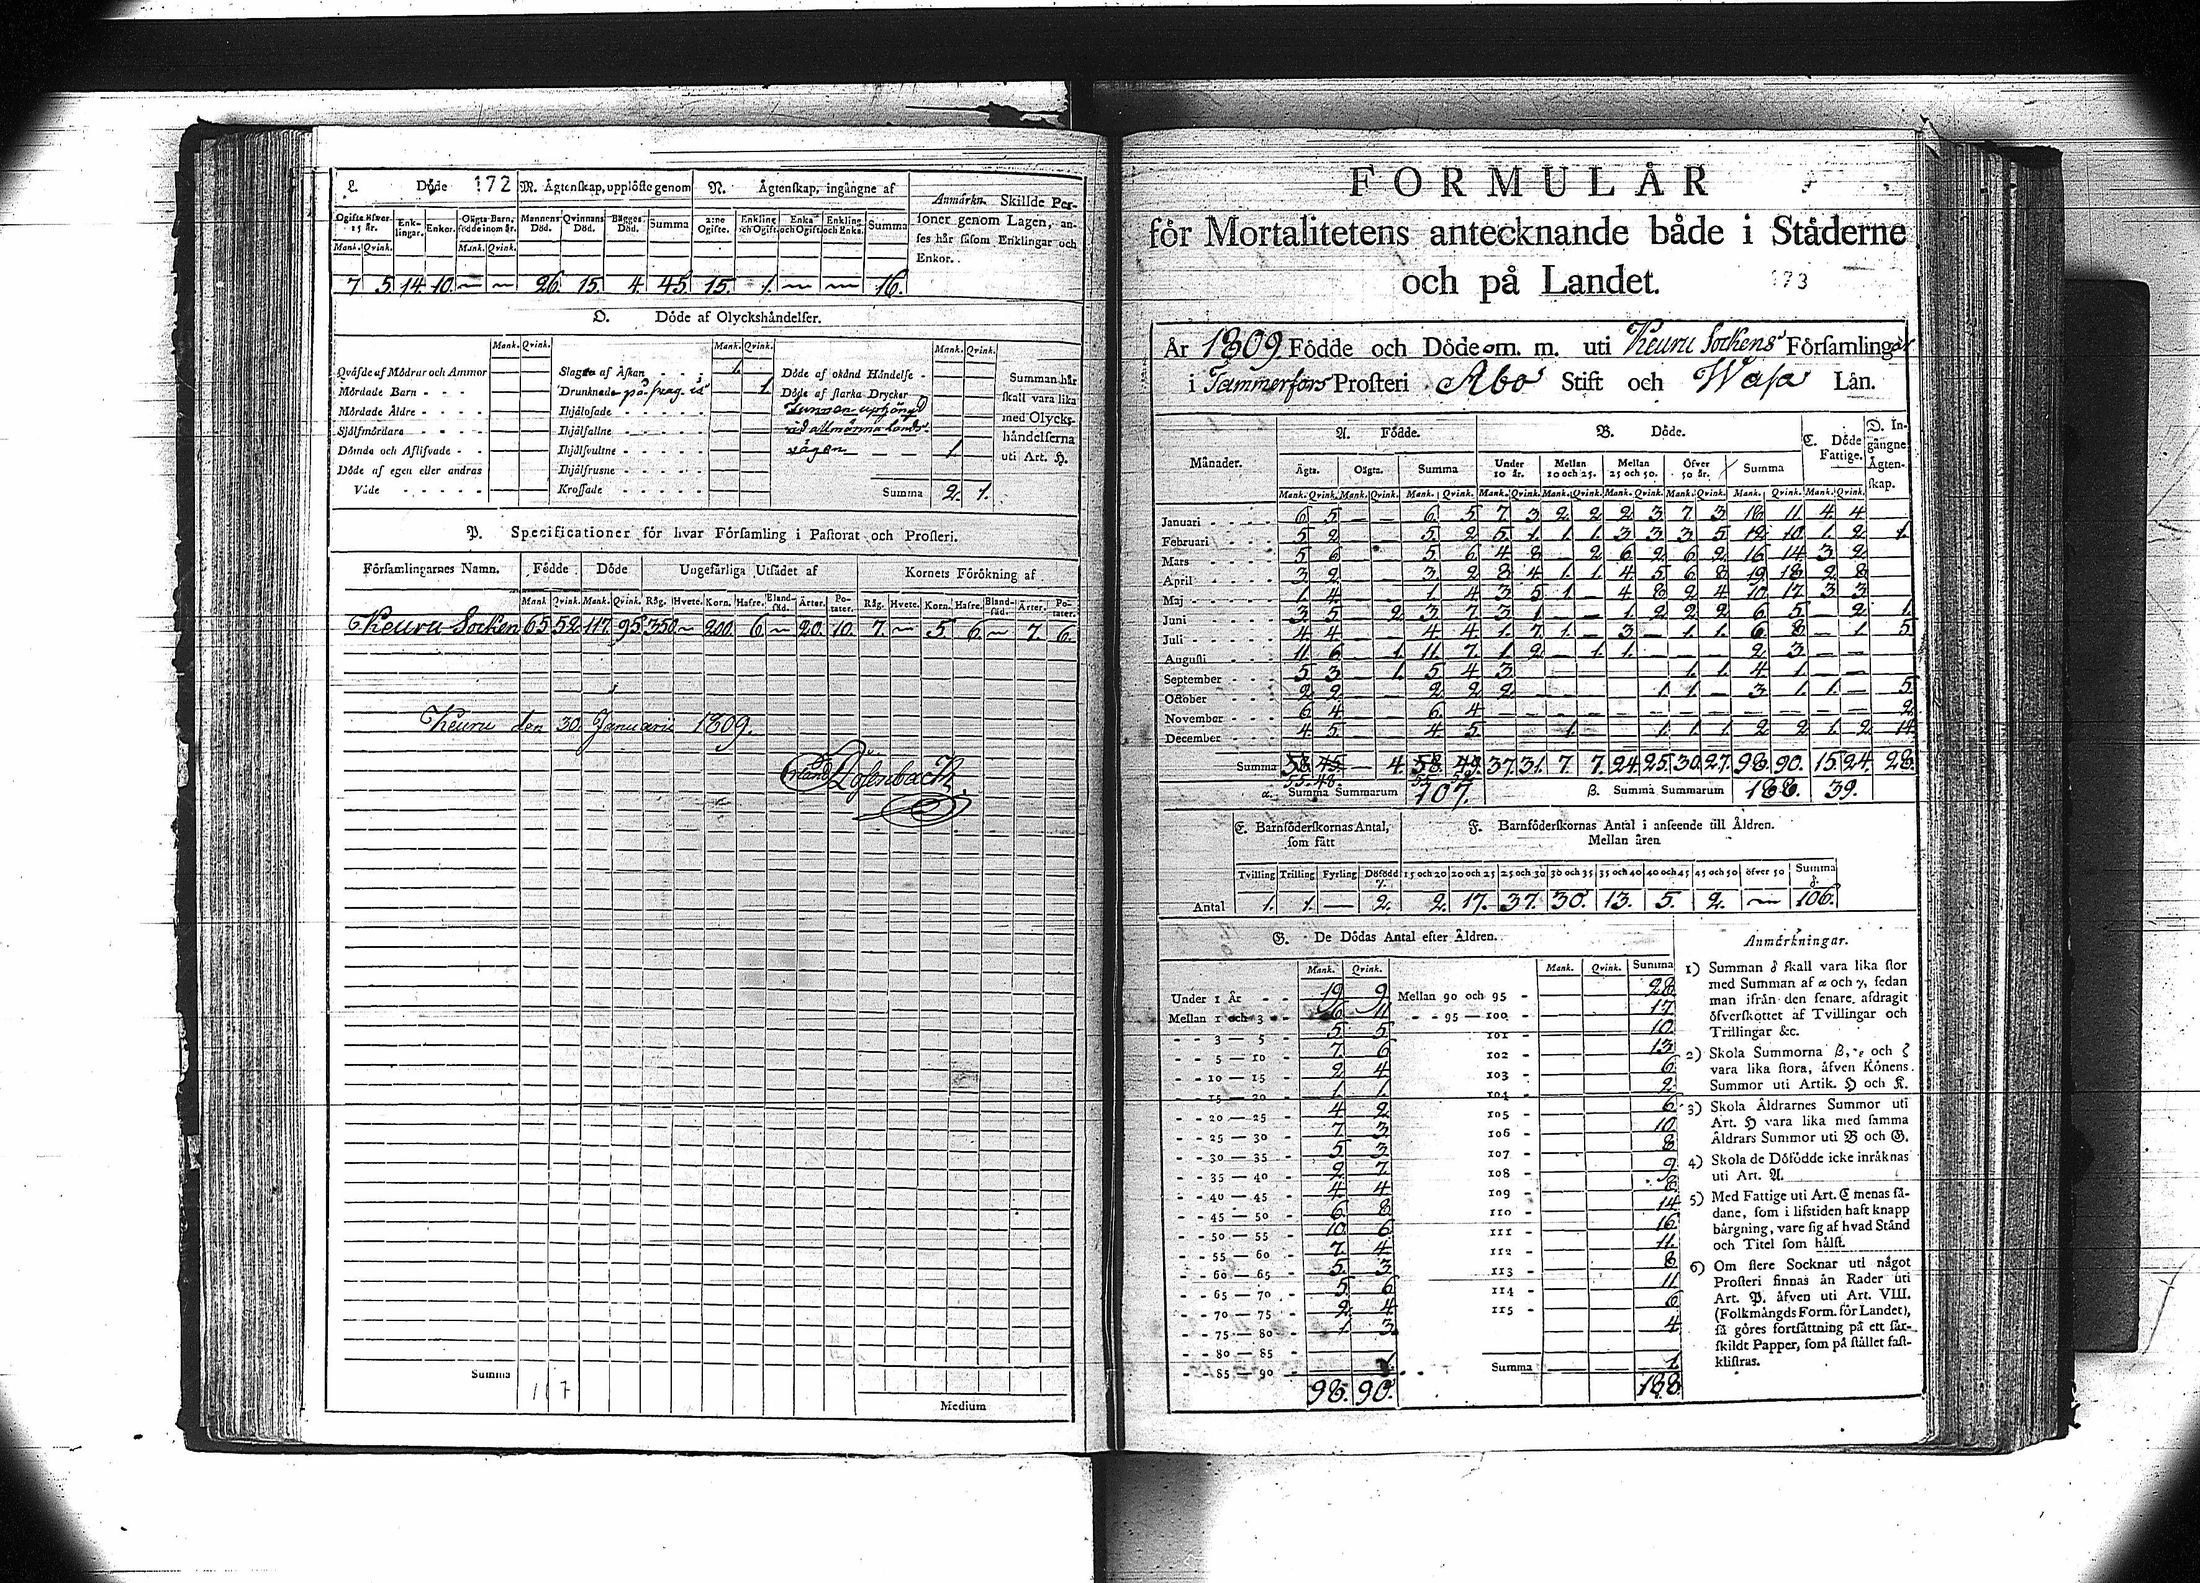 L. Döde 172 M. Ägtenskap, upplöste genom N. Ägtenskap, ingångne af Anmärkn. Skillde Per-
Ogifte öfver 15 år. Enk-lingar. Enkor. Oägta Barn, födde inom år. Mannens Död. Qvinnans Död. Bägges Död. Summa 2:ne Ogifte. Enkling och Ogift Enka och Ogift Enkling och Enka Summa soner genom Lagen, an-
ses här såsom Enklingar och
Mank. Qvink. Mank. Qvink. Enkor.
7 5 14. 10. — — 26. 15. 4. 45. 15. 1. — — 16.
O. Döde af Olyckshändelser.
Mank. Qvink. Mank. Qvink. Mank. Qvink.
Qväfde af Mödrar och Ammor Slagne af Åskan 1. Döde af okänd Händelse - Summan här
Mördade Barn Drunknade på svag is 1. Döde af starka Drycker skall vara lika
Mördade Äldre Ihjälosade Funnen uphängd med Olycks-
Själfmördare Ihjälfallne vid allmänna lands händelserna
Dömde och Aflifvade Ihjälsvultne vägen 1. uti Art. H.
Döde af egen eller andras Ihjälfrusne
Våde Krossade Summa 2. 1.
P. Specificationer för hvar Församling i Pastorat och Prosteri.
Församlingarnes Namn. Födde Döde Ungefärliga Utsädet af Kornets Förökning af
Mank Qvink. Mank. Qvink. Råg. Hvete. Korn. Hafre. Bland-säd. Ärter. Po-tater. Råg. Hvete. Korn. Hafre. Bland-säd. Ärter. Po-tater.
Keuru Socken 65 52 117. 95 350 — 200 6. — 20. 10. 7. — 5 6. — 7. 6.
Keuru den 30 Januarii 1809.
Erland Rosenback
Summa 117
Medium
FORMULÄR
för Mortalitetens antecknande både i Städerne
och på Landet. 173
År 1809 Födde och Döde m. m. uti Keuru Sockens Församling
i Tammerfors Prosteri Åbo Stift och Wasa Län.
Månader. A. Födde. B. Döde. C. Döde Fattige. D. In-gångne Ägten-skap.
Ägta. Oägta. Summa Under 10 år. Mellan 10 och 25. Mellan 25 och 50. Öfver 50 år. Summa
Mank. Qvink. Mank. Qvink. Mank. Qvink. Mank. Qvink. Mank. Qvink. Mank. Qvink. Mank. Qvink. Mank. Qvink. Mank. Qvink.
Januari 6 5 — — 6. 5 7 3 2 2 2 3 7 3 18 11 4 4
Februari 5 2 5 2 5 1 1 1 3 3 3 5 12 10 1. 2 1.
Mars 5 6 5 6 4 8 - 2 6 2 6 2 16 14 3 2
April 3 2 3. 2 8 4 1. 1. 4 5 6 8 19 18 2 8
Maj 1 4 1 4 3 5 1 - 4 8 2 4 10 17 3 3
Juni 3 5 2 3 7 3 1 — — 1 2 2 2 6 5 - 2 1
Juli 4 4 4 4 1. 7 1. - 3 - 1. 1. 6 8 — 1 5
Augusti 11 6 — 1. 11 7. 1 2 — 1 1. — — — 2 3 — —
September 5 3 1 5 4 3 1 1 4 1
October 2 2 2 2 2 1 1 — 3 1 1. — 5
November 6 4 6. 4 — — — — — — — — — — — — 2
December 4 5 4 5 1 1 1 1 2 2 1. 2 14
Summa 58 45 — 4. 58 49. 37. 31. 7. 7. 24. 25. 30. 27. 98. 90. 15. 24. 28.
55. 48. 55. 52.
α. Summa Summarum 107. β. Summa Summarum 188. 39.
E. Barnföderskornas Antal, som fått F. Barnföderskornas Antal i anseende till Åldren.
Mellan åren
Tvilling Trilling Fyrling Dödfödd γ. 15 och 20 20 och 25 25 och 30 30 och 35 35 och 40 40 och 45 45 och 50 öfver 50 Summa δ.
Antal 1. 1. — 2. 2. 17. 37. 30. 13. 5. 2. — 106.
G. De Dödas Antal efter Åldren.
Mank. Qvink. Mank. Qvink. Summa
Under 1 År 19 9 Mellan 90 och 95 28
Mellan 1 och 3 6 11 95 — 100 17
3 — 5 5 5 101 10
5 — 10 7 6 102 13
10 — 15 2 4 103 6
15 — 20 1. 1. 104 2
20 — 25 4 2 105 6
25 — 30 7 3 106 10
30 — 35 5 3 107 8
35 — 40 2 7 108 9
40 — 45 4 4 109 8
45 — 50 6 8 110 14
50 — 55 10 6 111 16
55 — 60 7. 4 112 11.
60 — 65 5. 3 113 8
65 — 70 5 6 114 11
70 — 75 2 4 115 6
75 — 80 1 3 4
80 — 85
85 — 90 1. Summa 1.
98. 90. 188
Anmärkningar.
1) Summan δ skall vara lika stor
med Summan af α och γ, sedan
man ifrån den senare afdragit
öfverskottet af Tvillingar och
Trillingar &c.
2) Skola Summorna β, ε och ζ
vara lika stora, äfven Könens
Summor uti Artik. H och K.
3) Skola Åldrarnes Summor uti
Art. H vara lika med samma
Åldrars Summor uti B och G.
4) Skola de Dödfödde icke inräknas
uti Art. A.
5) Med Fattige uti Art. C menas så-
dane, som i lifstiden haft knapp
bärgning, vare sig af hvad Stånd
och Titel som hälst.
6) Om flere Socknar uti något
Prosteri finnas än Rader uti
Art. P. äfven uti Art. VIII.
(Folkmängds Form. för Landet),
så göres fortsättning på ett sär-
skildt Papper, som på stället fast-
klistras.